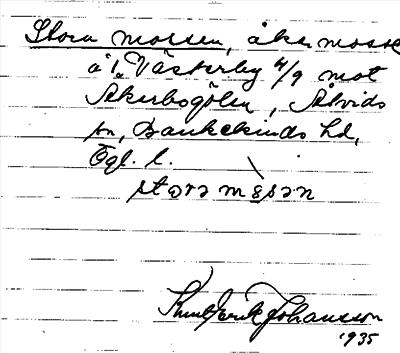 Stora mossen, åker, mosse
å 1/2 Västerby 4/9 mot
Åkerbogölen, Åtvids
sn, Bankekinds hd,
Ögl. l.
stora mosən
Knut Erik Johansson
1935